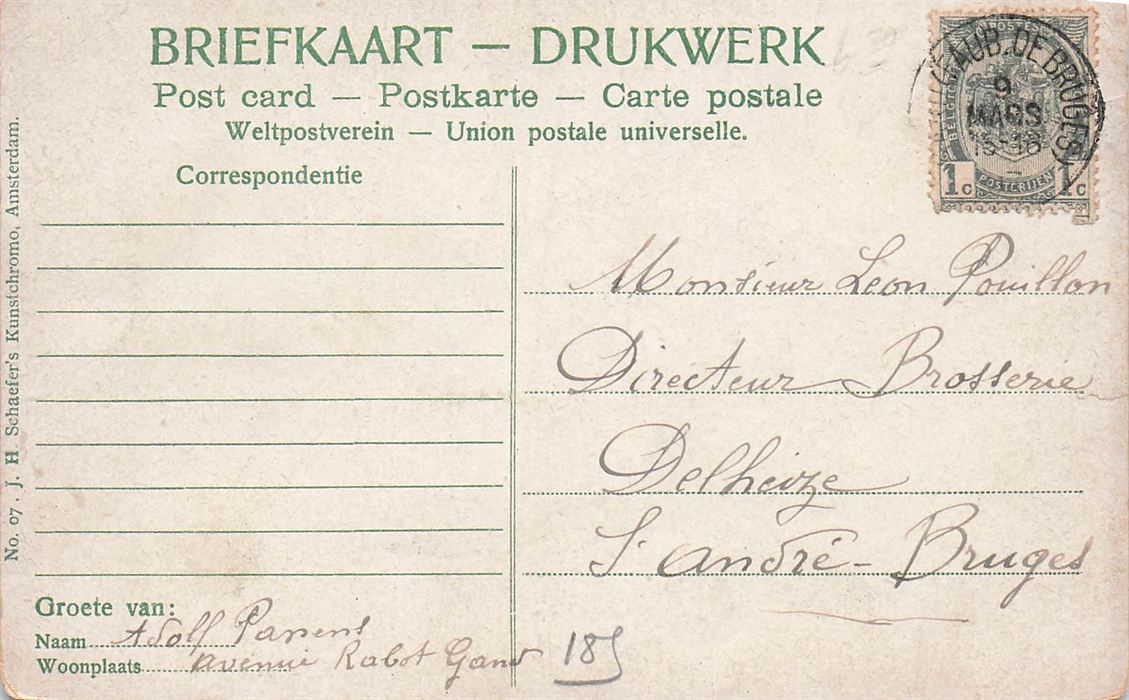 BRIEFKAART — DRUKWERK
Post card — Postkarte — Carte postale
Weltpostverein — Union postale universelle.
Correspondentie
FAUB. DE BRUGES
9
MARS
BELGIQUE POSTES
1c 1c
POSTERIJEN
Monsieur Leon Pouillon
Directeur Brosserie
Delheize
St André - Bruges
Groete van:
Naam Adolf
Woonplaats avenue Rabot Gand
185
No. 07. J. H. Schaefer's Kunstchromo, Amsterdam.